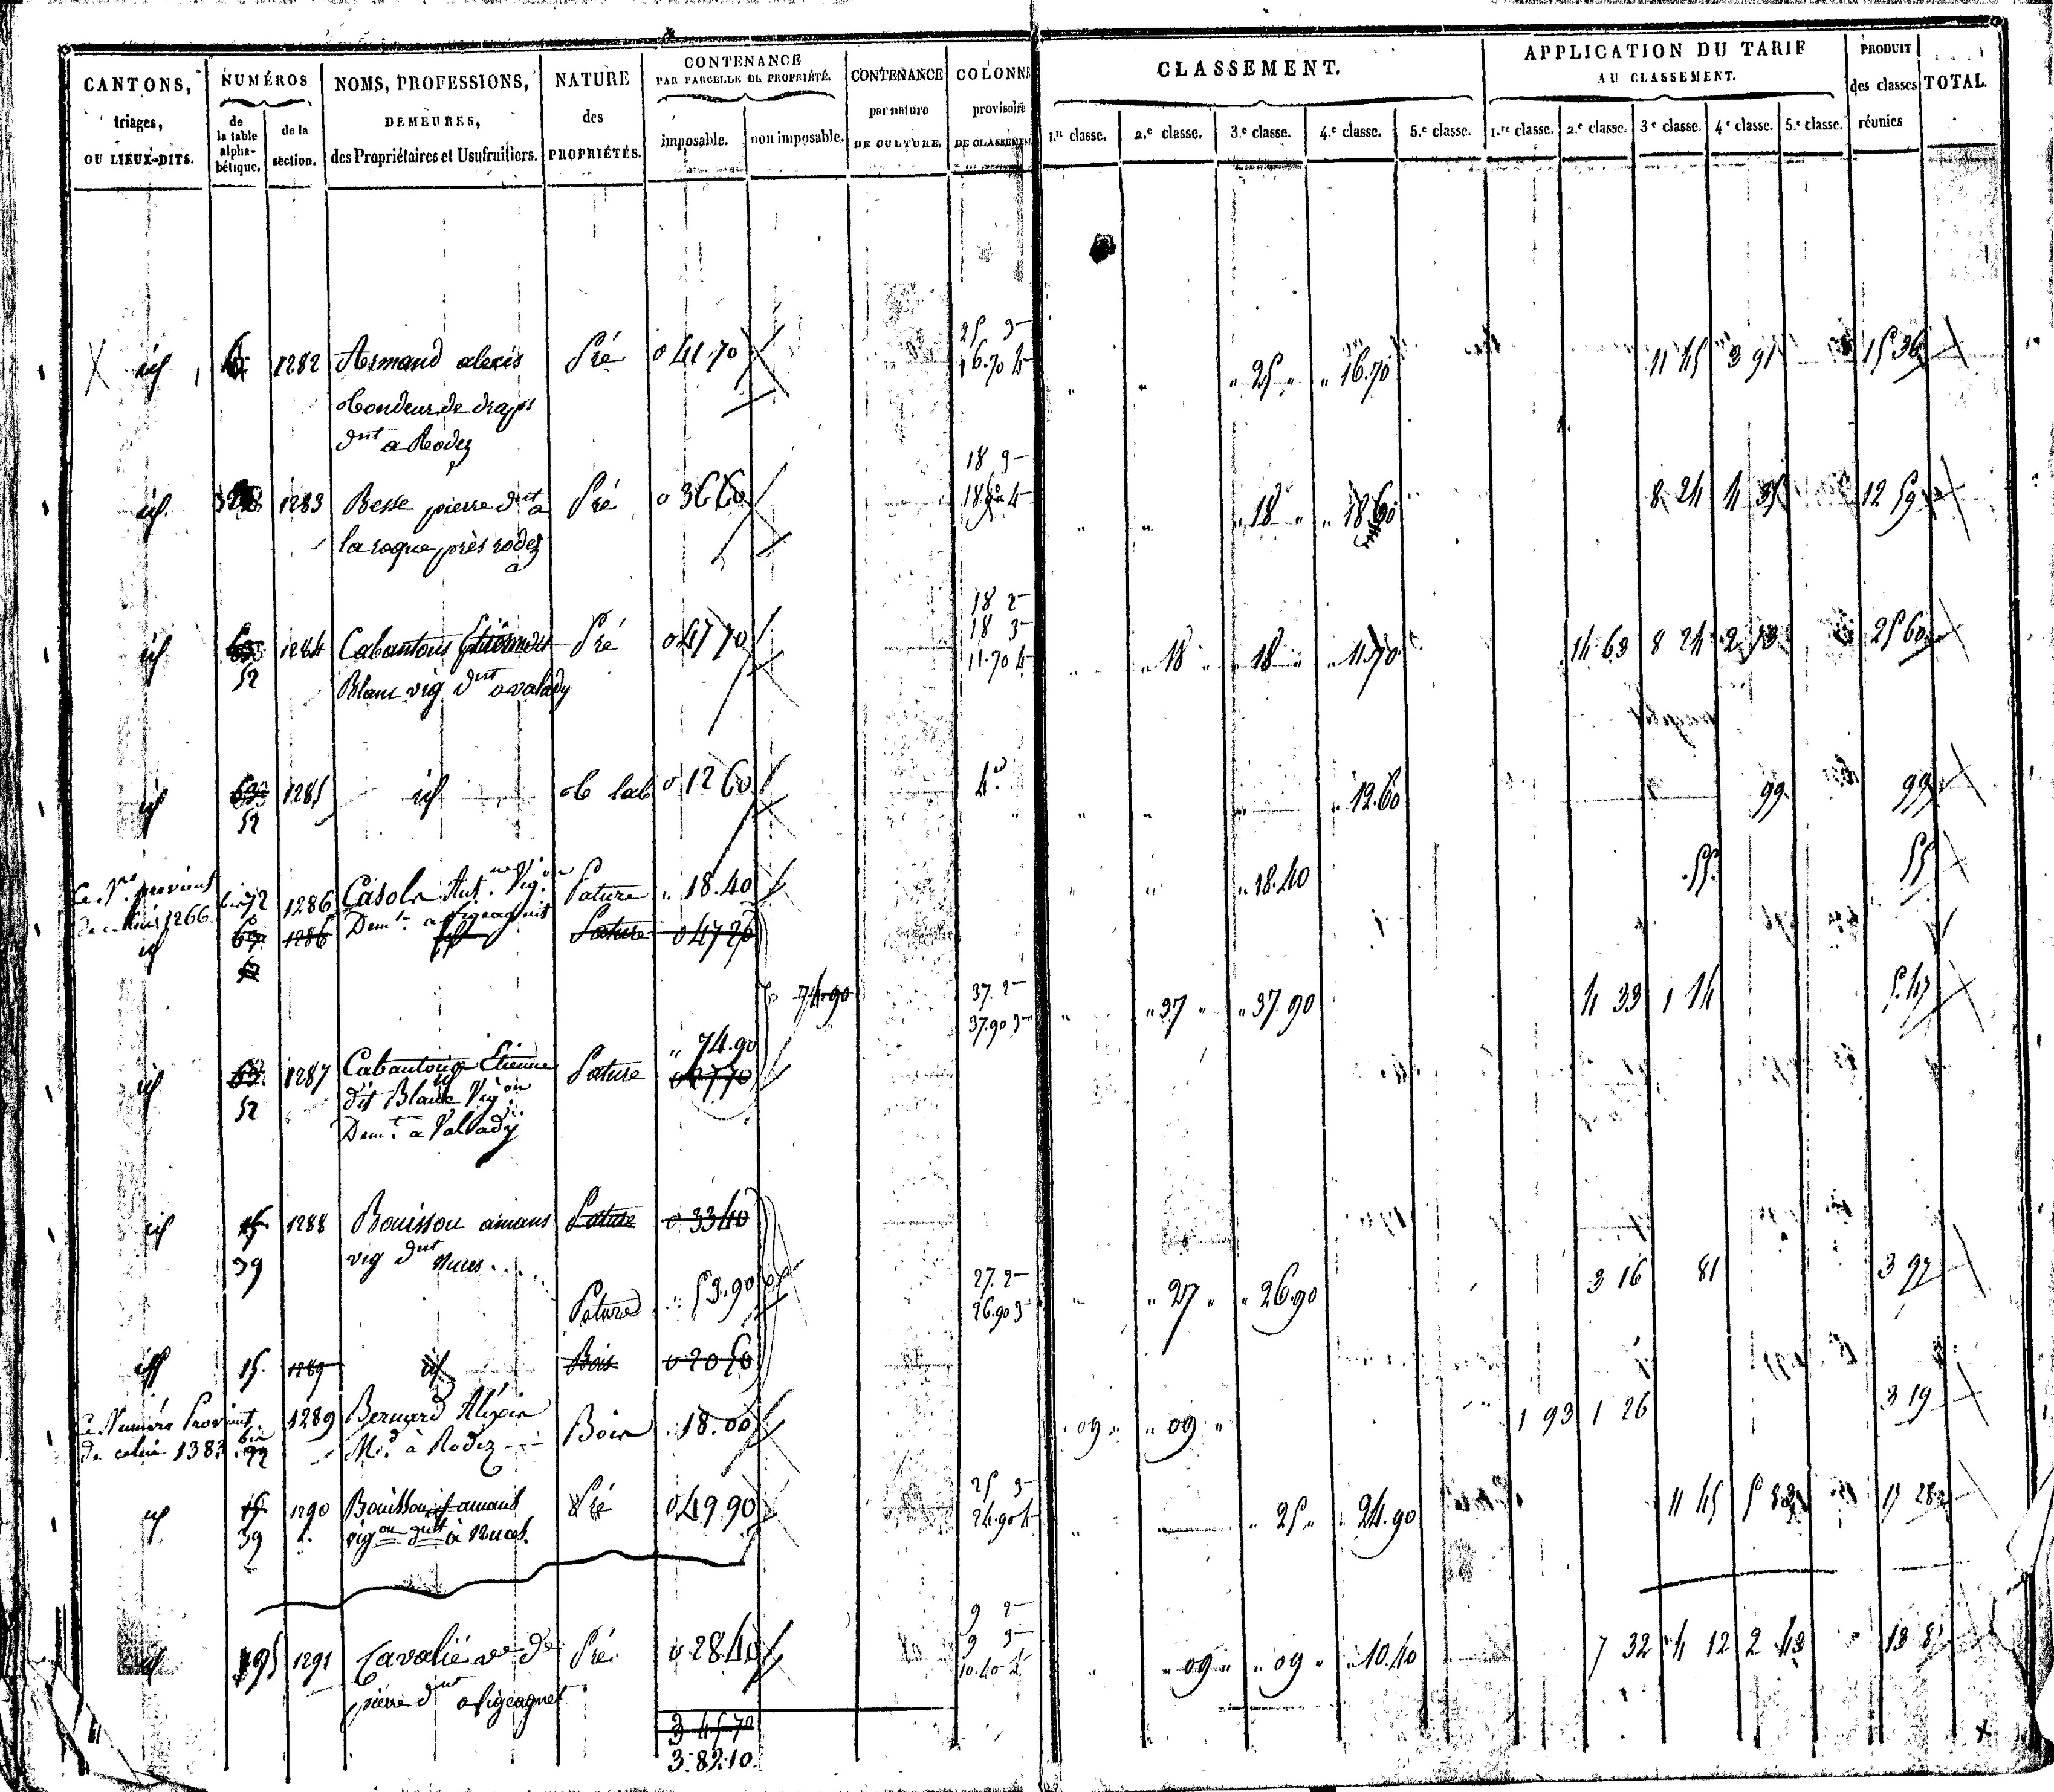 CANTONS, triages, OU LIEUX-DITS.
NUMÉROS
de la table alpha-bétique.
de la section.
NOMS, PROFESSIONS, DEMEURES, des Propriétaires et Usufruitiers.
NATURE des PROPRIÉTÉS.
CONTENANCE PAR PARCELLE DE PROPRIÉTÉ.
imposable. non imposable.
CONTENANCE par nature DE CULTURE.
COLONNE provisoire DE CLASSEMENT
CLASSEMENT.
1.re classe. 2.e classe. 3.e classe. 4.e classe. 5.e classe.
APPLICATION DU TARIF AU CLASSEMENT.
1.re classe. 2.e classe. 3.e classe. 4.e classe. 5.e classe.
PRODUIT des classes réunies
TOTAL.
25 3
id 1282 Armand alexis Pré 0 41.70 16.70 4 " " " 25 " " 16.70 11 45 3 91 15 36
tondeur de draps
dnt a Rodez
18 3
id 1283 Besse pierre dnt a Pré 0 36 60 18.60 4 " " " 18 " " 18 60 8 24 4 35 12 59
la roque près rodez
18 2
18 3
id 633 1284 Cabantous Etienne Pré 0 47 70 11.70 4 " 18 " 18 " " 11.70 14 63 8 24 2 73 25 60
52 Blanc vig dnt a valady
id 633 1285 id t lab 0 12 60 4e " " " 12.60 99 99
52
Ce No provient 1286 Casole Ant. Vig.on Pature " 18.40 " " " 18.40 55 55
de celui 1266. Demt. a
id 1286 id Pature 0 47 20
74.90 37. 2 " " 37 " " 37.90 4 33 1 14 5.47
37.90 3
" 74.90
id 63 1287 Cabantous Etienne Pature 0 27 70
52 dit Blanc Vig.on
Demt. a Valady
id 15 1288 Bouissou amans Pature 0 33 40
39 vig dnt Nuces
Pature " 53.90 27. 2 " " 27 " " 26.90 3 16 81 3 97
26.90 3
id 15. 1289 id Bois 0 20 50
Ce Numéro Provient 1289 Bernard Alexis Bois " 18.00 " 09 " " 09 " 1 93 1 26 3 19
de celui 1383 Md. à Rodez
25 3
id 15 1290 Bouissou amans Pré 0 49.90 24.90 4 " 25 " " 24.90 11 45 5 83 17 28
39 vigon dnt à Nuces.
9 2
9 3
id 195 1291 Cavalié ve de Pré. 0 28.40 10.40 4 " " 09 " " 09 " " 10.40 7 32 4 12 2 43 13 87
pierre dnt
3 45 70
3.82.10.